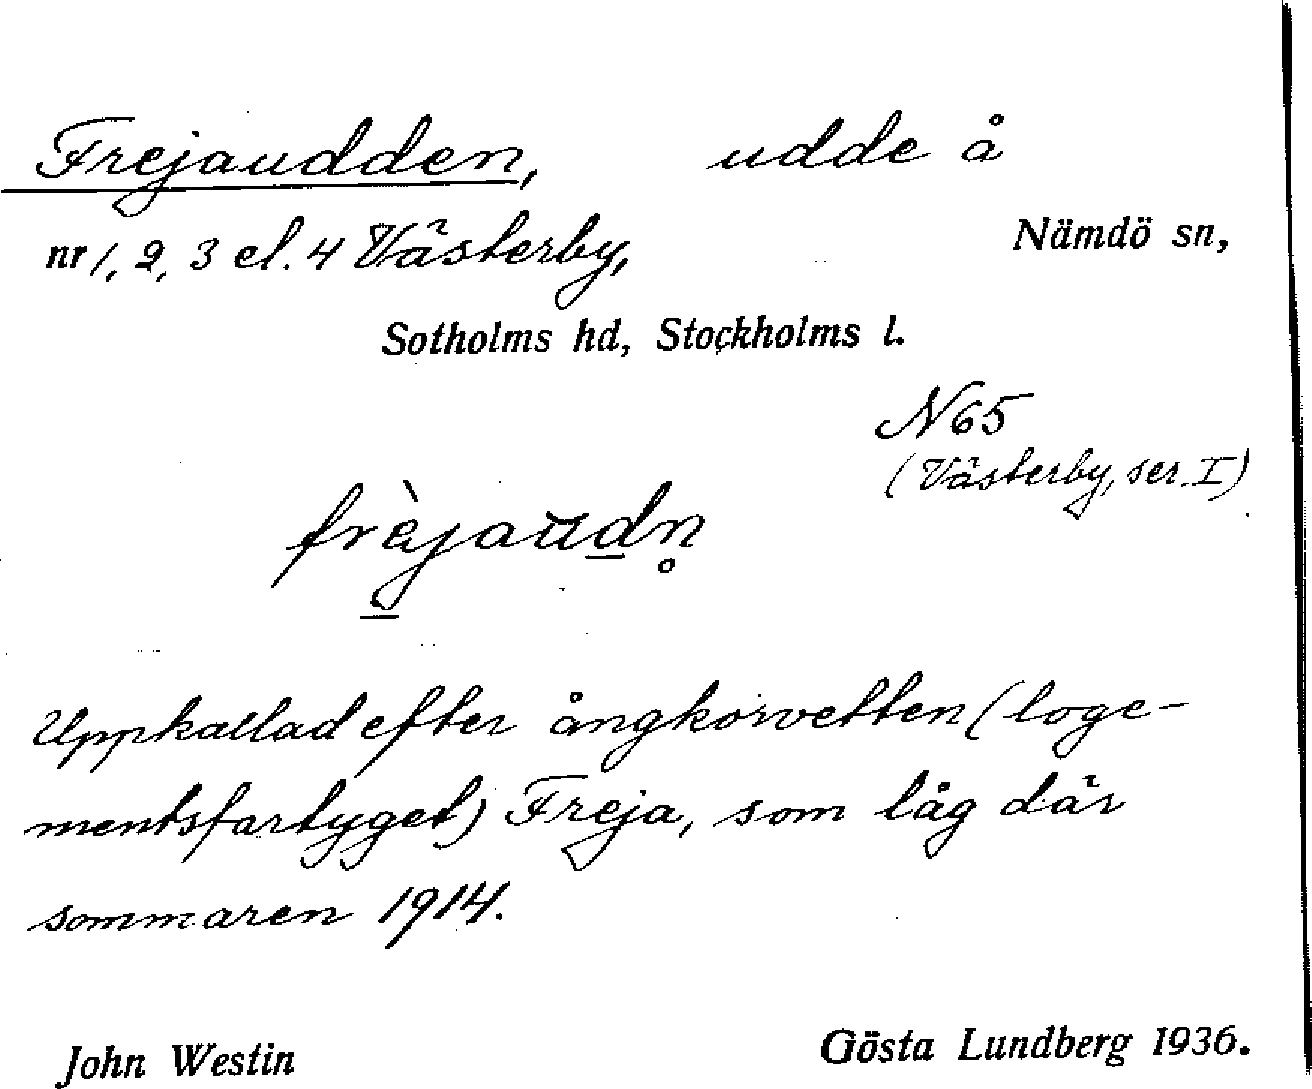 Frejaudden, udde å
nr 1, 2, 3 el. 4 Västerby, Nämdö sn,
Sotholms hd, Stockholms l.
N65
(Västerby, ser. I)
frèjaŭdn̥
Uppkallad efter ångkorvetten (loge-
mentsfartyget) Freja, som låg där
sommaren 1914.
John Westin Gösta Lundberg 1936.